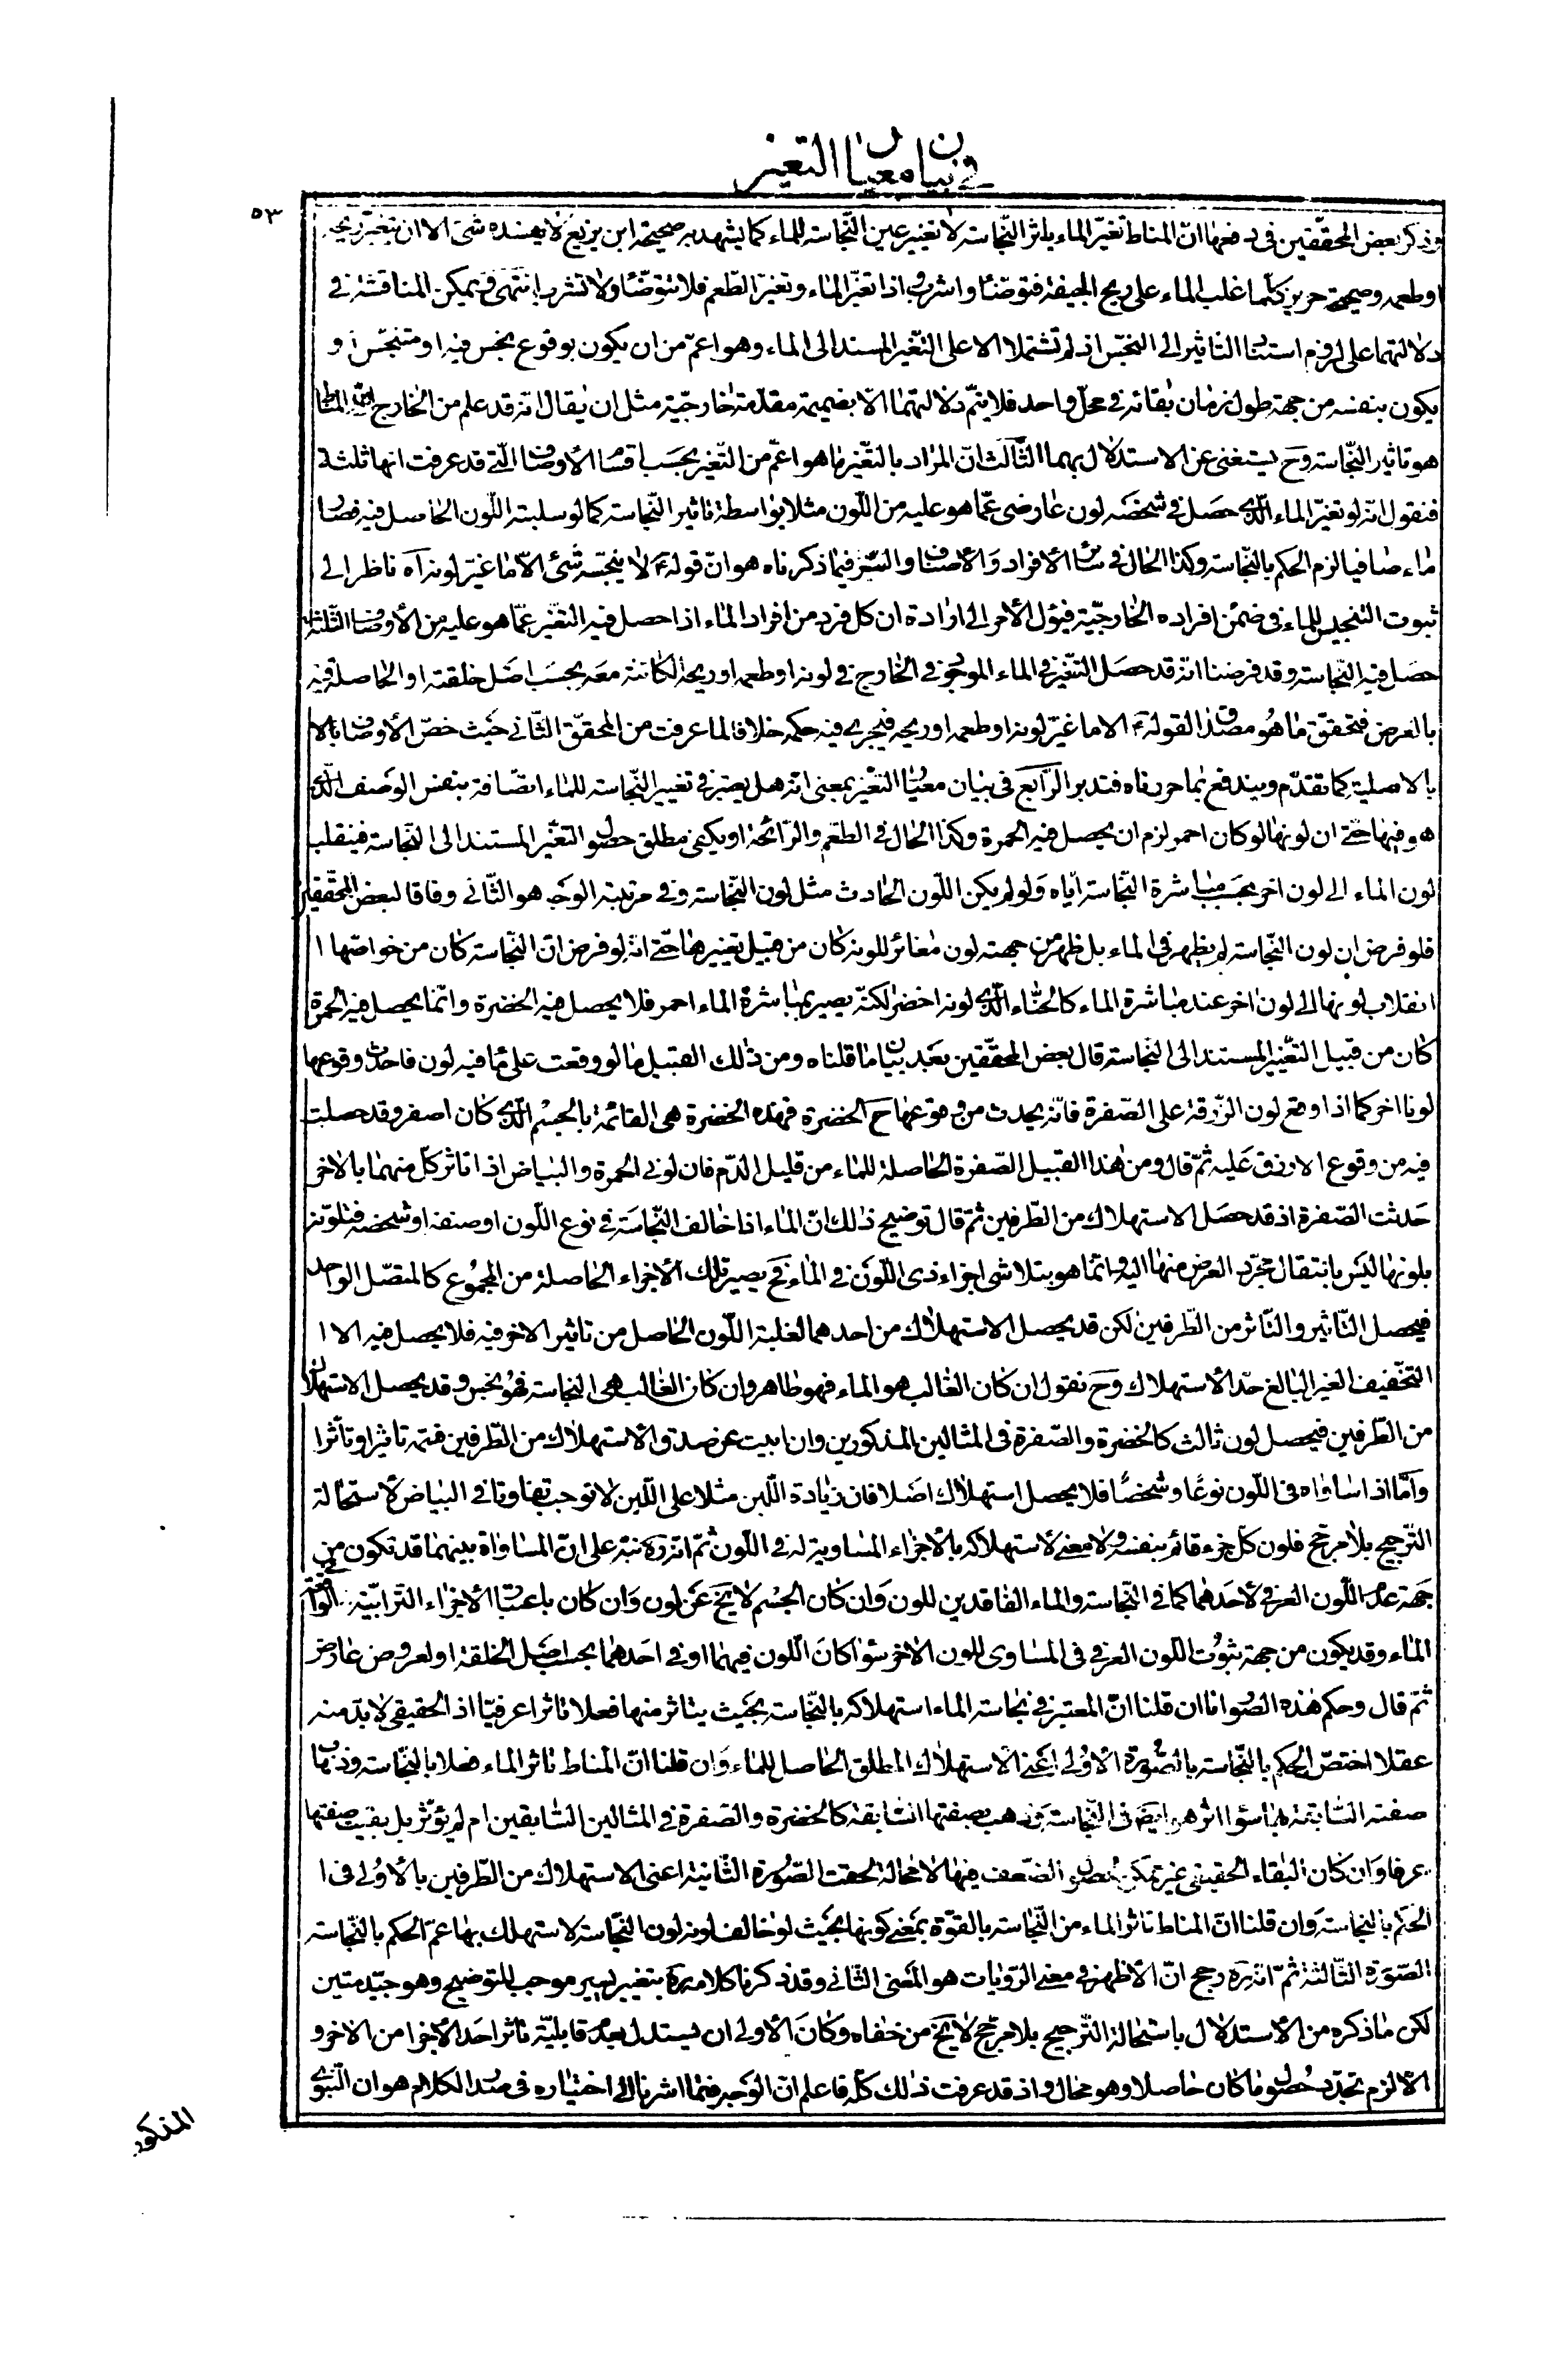 في بيان معيار التغير
٥٣
وذكر بعض المحقّقين في دفعها انّ المناط تغيّر الماء باثر النّجاسة لا تغيير عين النّجاسة للماء كما يشهد به صحيحة ابن بزيع لا يفسده شئ الا ان يتغيّر ريحه
او طعمه وصحيحة حريز كلّما غلب الماء على ريح الجيفة فتوضّأ واشرب اذا تغيّر الماء وتغيّر الطّعم فلا تتوضّأ ولا تشرب انتهى ويمكن المناقشة في
دلالتهما على لزوم استناد التاثير الى النجس اذ لم تشتملا الا على التغير المسند الى الماء وهو اعمّ من ان يكون بوقوع نجس فيه او متنجّس او
يكون بنفسه من جهة طول زمان بقائه في محلّ واحد فلا يتمّ دلالتهما الّا بضميمة مقدّمة خارجيّة مثل ان يقال انه قد علم من الخارج انّ المناط
هو تاثير النّجاسة وح يستغنى عن الاستدلال بهما الثّالث انّ المراد بالتغيّر ما هو اعمّ من التّغير بحسب اقسام الأوصاف الّتي قد عرفت انها ثلثة
فنقول انه لو تغيّر الماء الّذي حصل في شخصه لون عارضى عمّا هو عليه من اللّون مثلا بواسطة تاثير النّجاسة كما لو سلبته اللّون الحاصل فيه فصار
ماء صافيا لزم الحكم بالنّجاسة وكذا الحال في سائر الأفراد والأصناف والسّر فيما ذكرناه هو انّ قوله ع لا ينجّسه شئ الّا ما غيّر لونه آه ناظر الى
ثبوت التنجيس للماء في ضمن افراده الخارجيّة فيؤل الأمر الى ارادة ان كل فرد من افراد الماء اذا حصل فيه التغيّر عمّا هو عليه من الأوصاف الثلثة
حصل فيه النّجاسة وقد فرضنا انّه قد حصل التّغير في الماء الموجود في الخارج في لونه او طعمه او ريحه الكائنة معه بحسب اصل خلقته او الحاصلة فيه
بالعرض فتحقّق ما هو مصداق لقوله ع الا ما غيّر لونه او طعمه او ريحه فيجرى فيه حكمه خلافا لما عرفت من المحقّق الثّاني حيث خصّ الأوصاف بالا
بالاصلية كما تقدّم ويندفع بما حررناه فتدبر الرّابع في بيان معيار التغيّر بمعنى انّه هل يعتبر في تغيير النّجاسة للماء اتصافه بنفس الوصف الّذي
هو فيها حتى ان لونها لو كان احمر لزم ان يحصل فيه الحمرة وكذا الحال في الطّعم والرّائحة او يكفى مطلق حصول التغيّر المستند الى النّجاسة فينقلب
لون الماء الى لون اخر بحسب مباشرة النّجاسة ايّاه ولو لم يكن اللّون الحادث مثل لون النّجاسة وفي مرتبته الوجه هو الثّاني وفاقا لبعض المحقّقين
فلو فرض ان لون النّجاسة لم يظهر في الماء بل ظهر من جهته لون مغائر للونه كان من قبيل تغييرها حتى انه لو فرض انّ النّجاسة كان من خواصّها ا
انقلاب لونها الى لون اخر عند مباشرة الماء كالحنّاء الّذي لونه اخضر لكنّه يصير بمباشرة الماء احمر فلا يحصل فيه الخضرة وانّما يحصل فيه الحمرة
كان من قبيل التغيّر المستند الى النّجاسة قال بعض المحقّقين بعد بيان ما قلناه ومن ذلك القبيل ما لو وقعت على ما فيه لون فاحدث وقوعها
لونا اخر كما اذا وقع لون الزّرقة على الصّفرة فانّه يحدث من وقوعها ح الخضرة فهذه الخضرة هى القائمة بالجسم الّذي كان اصفر وقد حصلت
فيه من وقوع الازرق عليه ثمّ قال ومن هذا القبيل الصّفرة الحاصلة للماء من قليل الدّم فان لونى الحمرة والبياض اذا تاثر كلّ منهما بالاخر
حدثت الصّفرة اذ قد حصل الاستهلاك من الطّرفين ثمّ قال توضيح ذلك انّ الماء اذا خالف النّجاسة في نوع اللّون او صنفه او شخصه فتلوّنه
بلونها ليس بانتقال مجرّد العرض منها اليه وانّما هو بتلاشى اجزاء ذى اللّون في الماء فح يصير تلك الأجزاء الحاصلة من المجموع كالمتصّل الواحد
فيحصل التّاثير والتّاثر من الطّرفين لكن قد يحصل الاستهلاك من احدهما لغلبة اللّون الحاصل من تاثير الاخر فيه فلا يحصل فيه الا ا
التخفيف الغير البالغ حدّ الأستهلاك وح نقول ان كان الغالب هو الماء فهو طاهر وان كان الغالب هى النجاسة فهو نجس وقد يحصل الاستهلاك
من الطّرفين فيحصل لون ثالث كالخضرة والصّفرة في المثالين المذكورين وان ابيت عن صدق الأستهلاك من الطّرفين فسمّه تاثيرا وتأثّرا
وأمّا اذا ساواه في اللّون نوعًا وشخصًا فلا يحصل استهلاك اصلا فان زيادة اللّبن مثلا على اللّبن لا توجب تفاوتا في البياض لأستحالة
التّرجيح بلا مرجّح فلون كلّ جزء قائم بنفسه ولا معنى لأستهلاكه بالأجزاء المساوية له في اللّون ثمّ انه ره نبّه على انّ المساواة بينهما قد تكون من
جهة عدم اللّون العرفي لأحدهما كما في النّجاسة والماء الفاقدين للون وان كان الجسم لا يخ عن لون وان كان باعتبار الأجزاء التّرابيّة
الماء وقد يكون من جهة ثبوت اللّون العرفي في المساوى للون الاخر سواء كان اللّون فيهما او في احدهما بحسب اصل الخلقة او لعروض عارض
ثمّ قال وحكم هذه الصّور امّا ان قلنا انّ المعتبر في نجاسة الماء استهلاكه بالنّجاسة بحيث يتاثر منها فعلا تاثرا عرفيّا اذ الحقيقى لا بدّ منه
عقلا اختصّ الحكم بالنّجاسة بالصّورة الأولى اعنى الاستهلاك المطلق الحاصل للماء وان قلنا انّ المناط تاثر الماء فعلا بالنّجاسة وذهاب
صفته السّابقة بها سواء اثر هو ايضا في النّجاسة فذهب بصفتها السّابقة كالخضرة والصّفرة في المثالين السّابقين ام لم يؤثّر بل بقيت صفتها
عرفا وان كان البقاء الحقيقى غير ممكن لحصول الضّعف فيها لا محالة لحقت الصّورة الثّانية اعنى الاستهلاك من الطّرفين بالأولى في ا
الحكم بالنجاسة وان قلنا انّ المناط تاثر الماء من النّجاسة بالقوّة بمعنى كونها بحيث لو خالف لونه لون النّجاسة لاستهلك بها عمّ الحكم بالنّجاسة
الصّورة الثّالثة ثمّ انه ره رجح انّ الاظهر في معنى الرّوايات هو المعنى الثّاني وقد ذكرنا كلامه ره بتغيير يسير موجب للتوضيح وهو جيّد متين
لكن ما ذكره من الأستدلال باستحالة التّرجيح بلا مرجّح لا يخ من خفاه وكان الأولى ان يستدل بعدم قابليّة تاثر احد الأجزاء من الاخر و
الّا لزم تجدّد حصول ما كان حاصلا وهو محال واذ قد عرفت ذلك كلّه فاعلم انّ الوجه فيما اشرنا الى اختياره في صدر الكلام هو ان النّبوي
المذكور